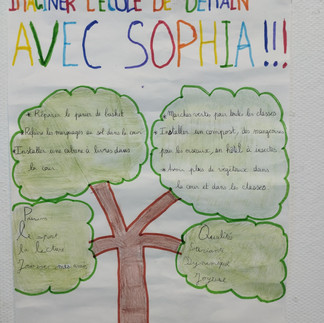 IMAGINER L'ÉCOLE DE DEMAIN
AVEC SOPHIA !!!
Réparer le panier de basket
Refaire les marquages au sol dans la cour
Installer une cabane à livres dans
la cour
Marche verte pour toutes les classes
Installer un compost, des mangeoires
pour les oiseaux, un hôtel à insectes
Avoir plus de végétaux dans
la cour et dans les classes
Le sport
la lecture
Qualités
Dynamique
Joyeuse